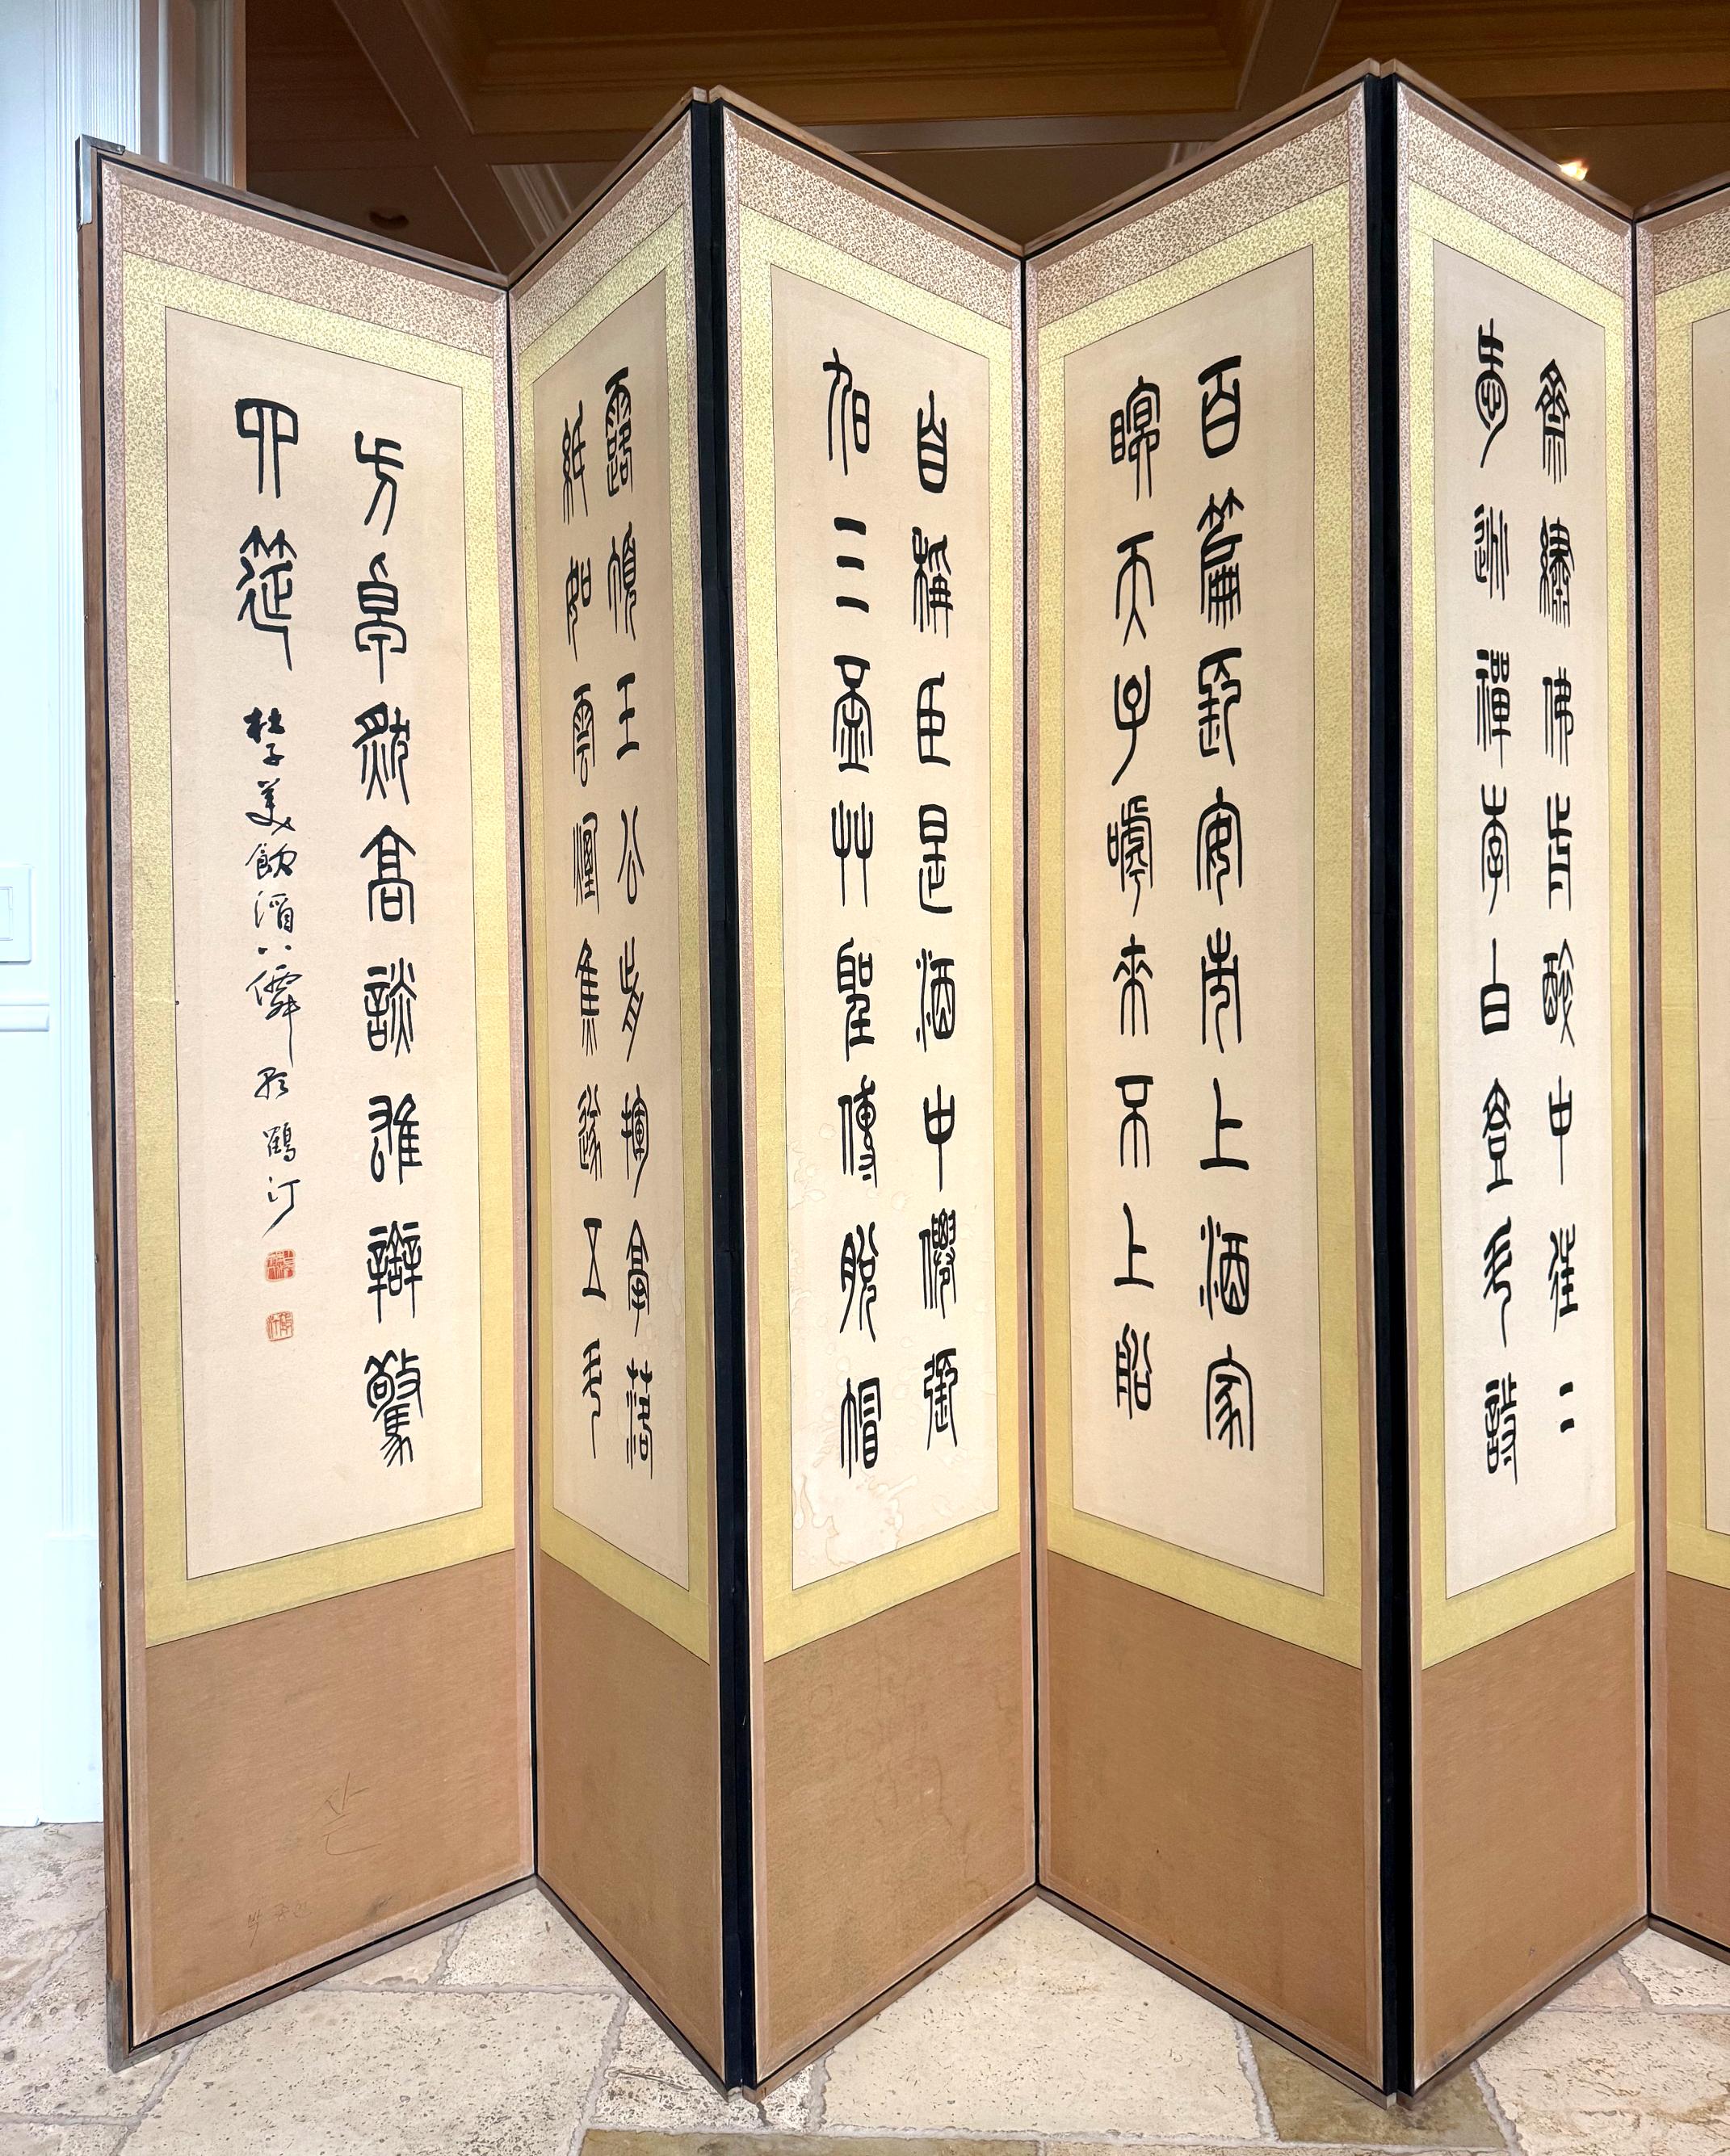 齋繡佛前醉中往〻
愛逃禪李白壹斗詩
百篇長安市上酒家
眠天子呼來不上船
自稱臣是酒中僊張
旭三盃艸聖傳脫帽
露頂王公前揮毫落
紙如雲煙焦遂五斗
方卓然高談雄辯驚
四筵 杜子美飲酒八僊歌 鶴汀